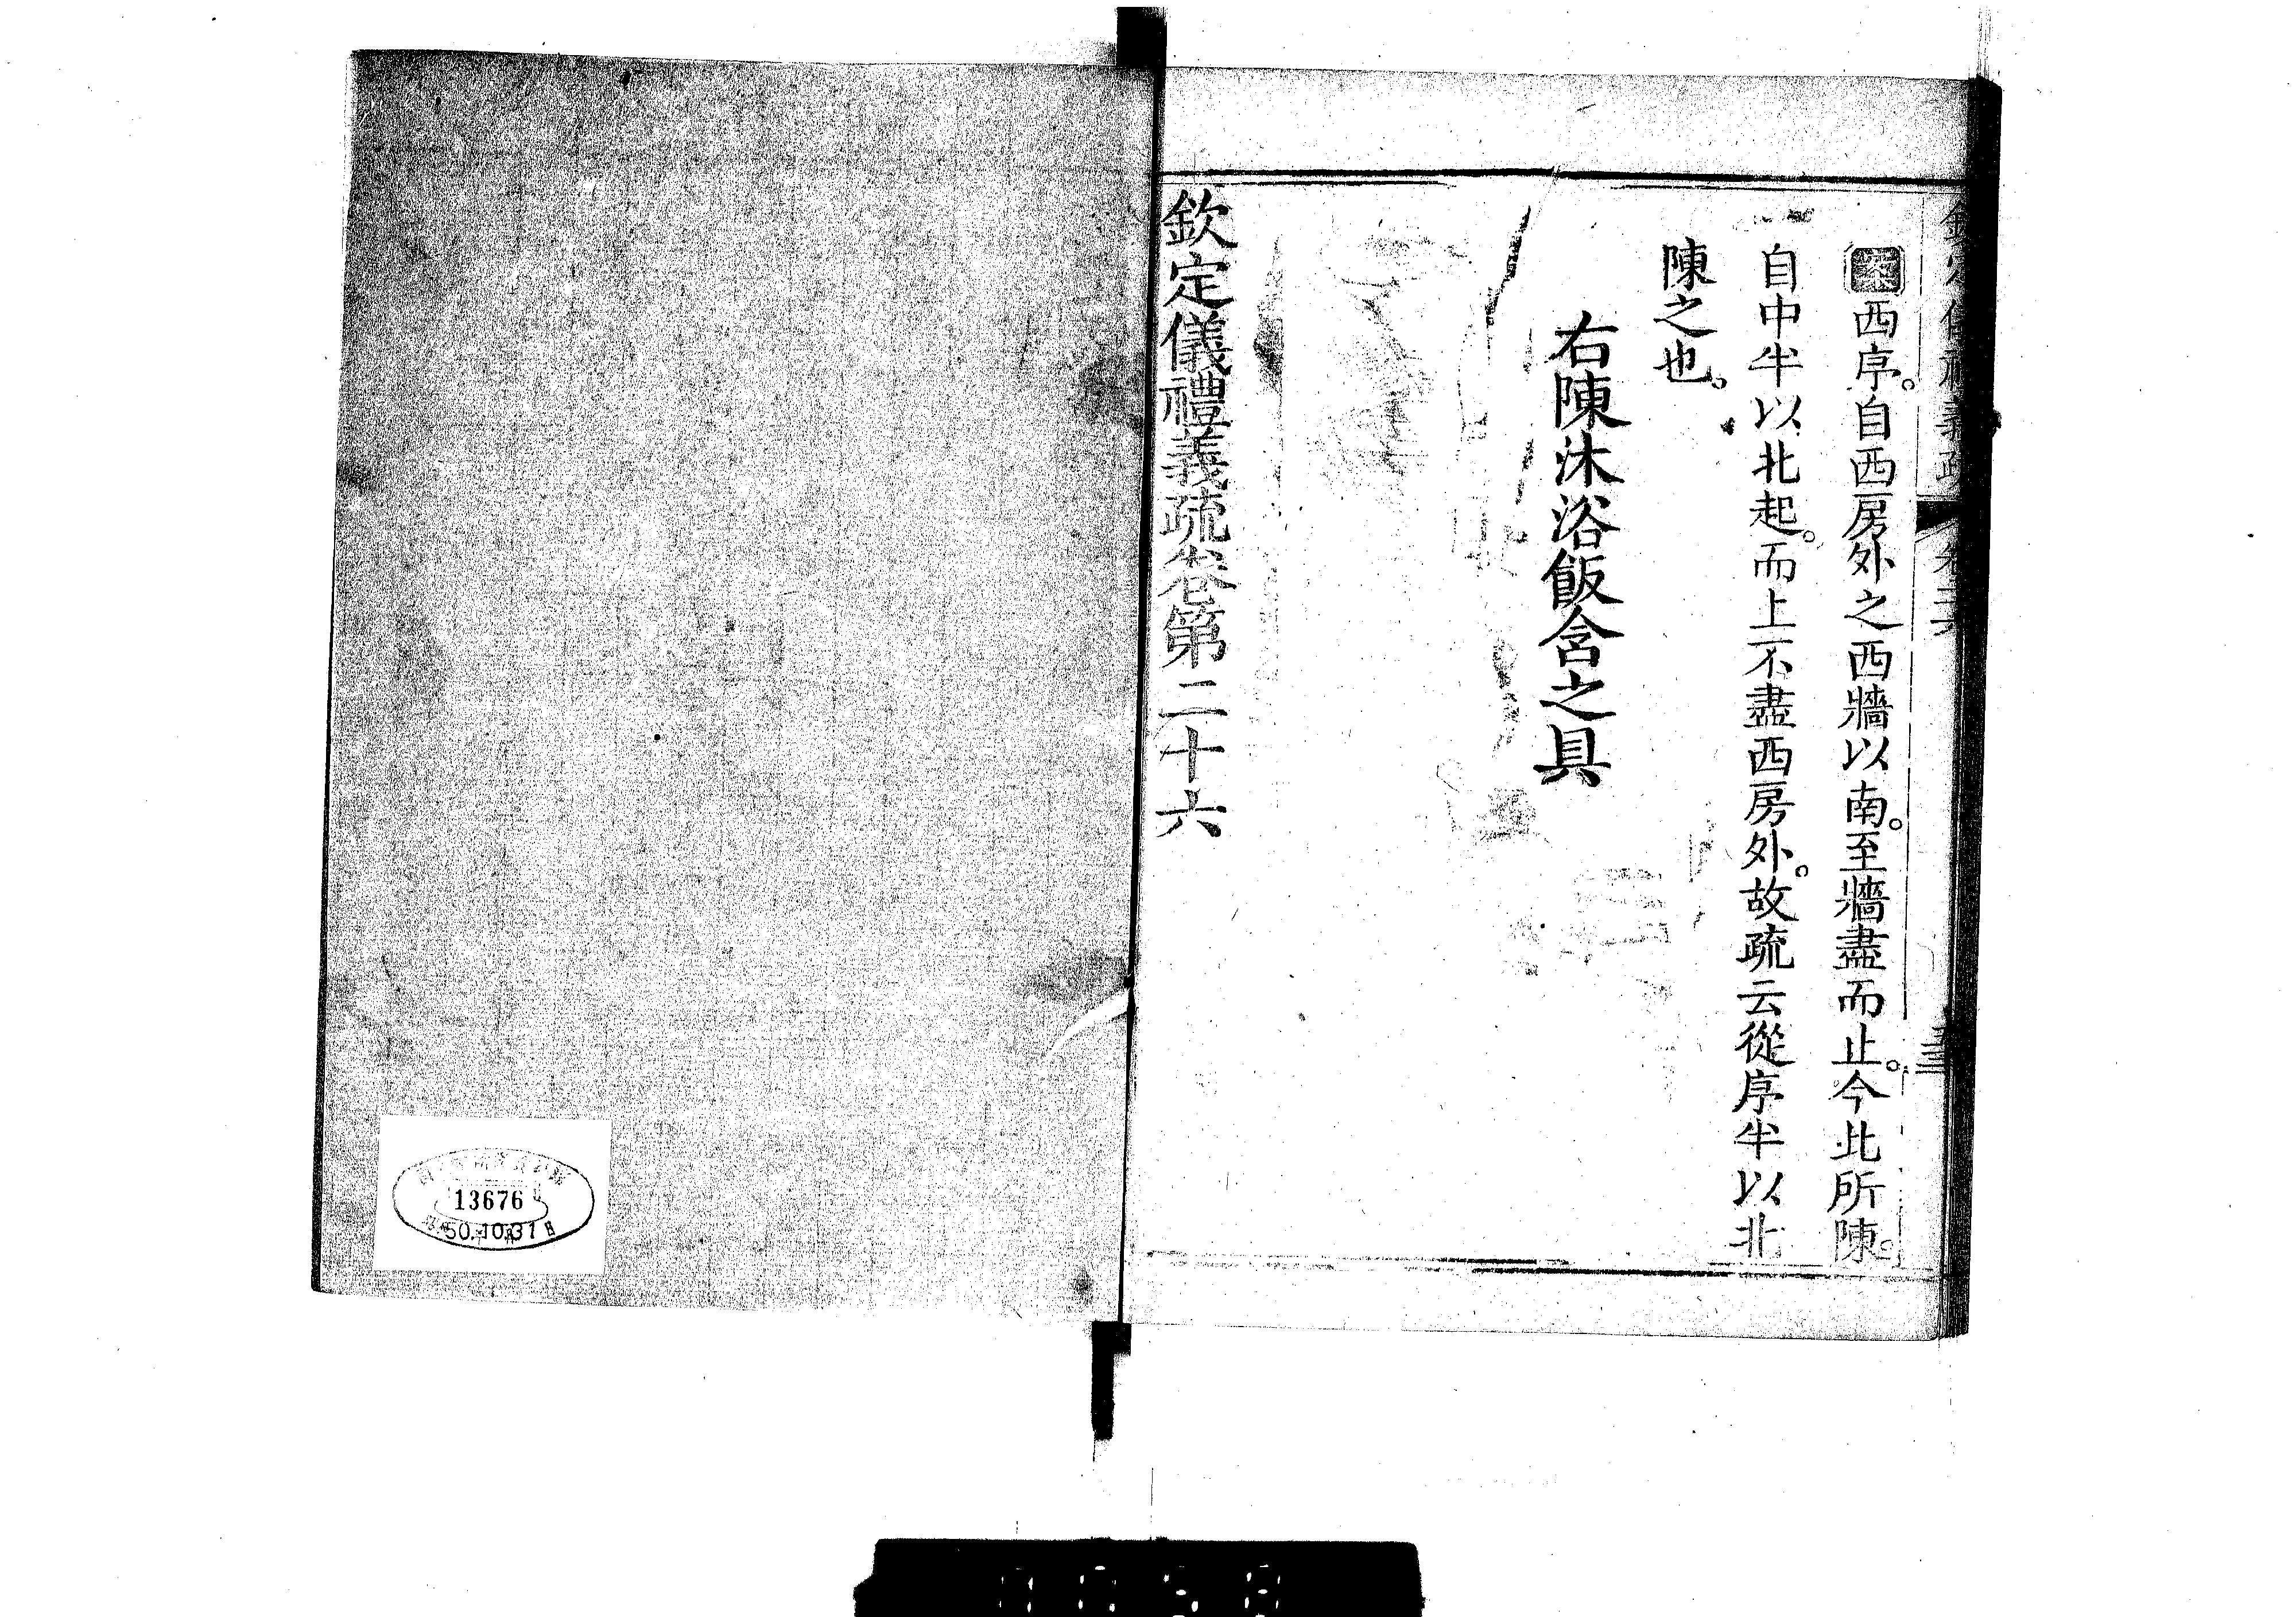 欽定儀禮義疏 卷二六
案西序。自西房外之西牆以南。至牆盡而止。今此所陳。
自中半以北起。而上不盡西房外。故疏云從序半以北
陳之也。
右陳沐浴飯含之具
欽定儀禮義疏卷第二十六
13676
50.10.31